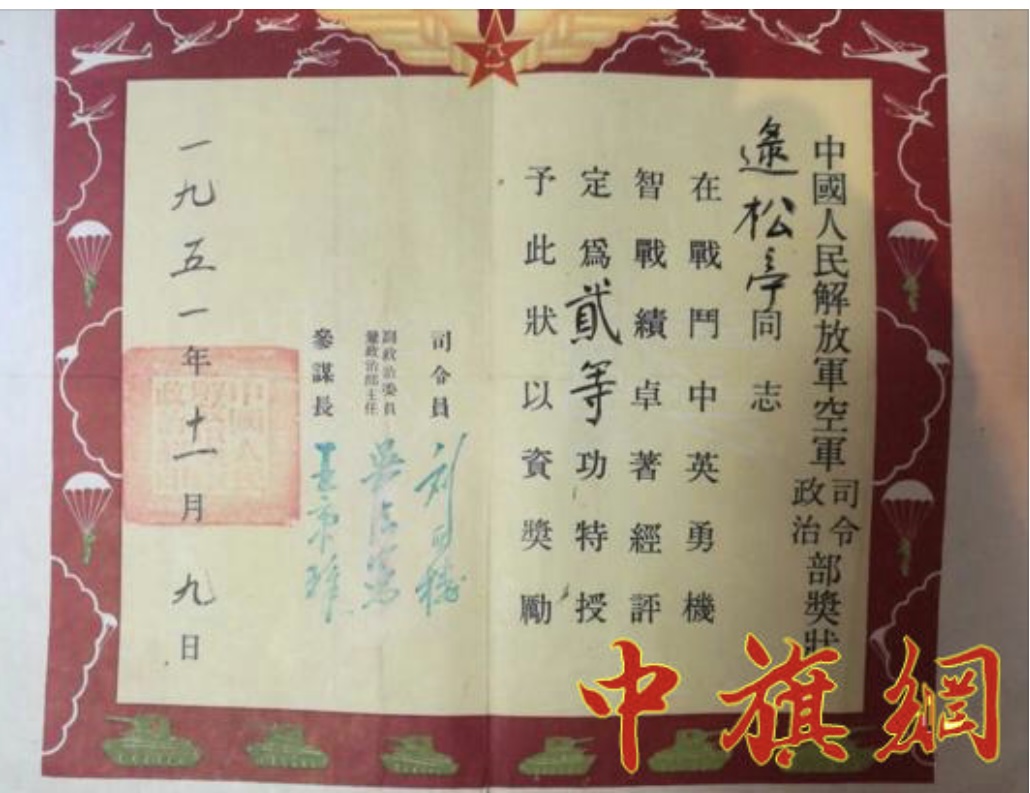 中國人民解放軍空軍司令政治部獎狀
逯松亭同志
在戰鬥中英勇機
智戰績卓著經評
定爲貳等功特授
予此狀以資獎勵
司令員 刘亞楼
副政治委員兼政治部主任 吳法憲
參謀長 王秉璋
一九五一年十一月九日
中旗網